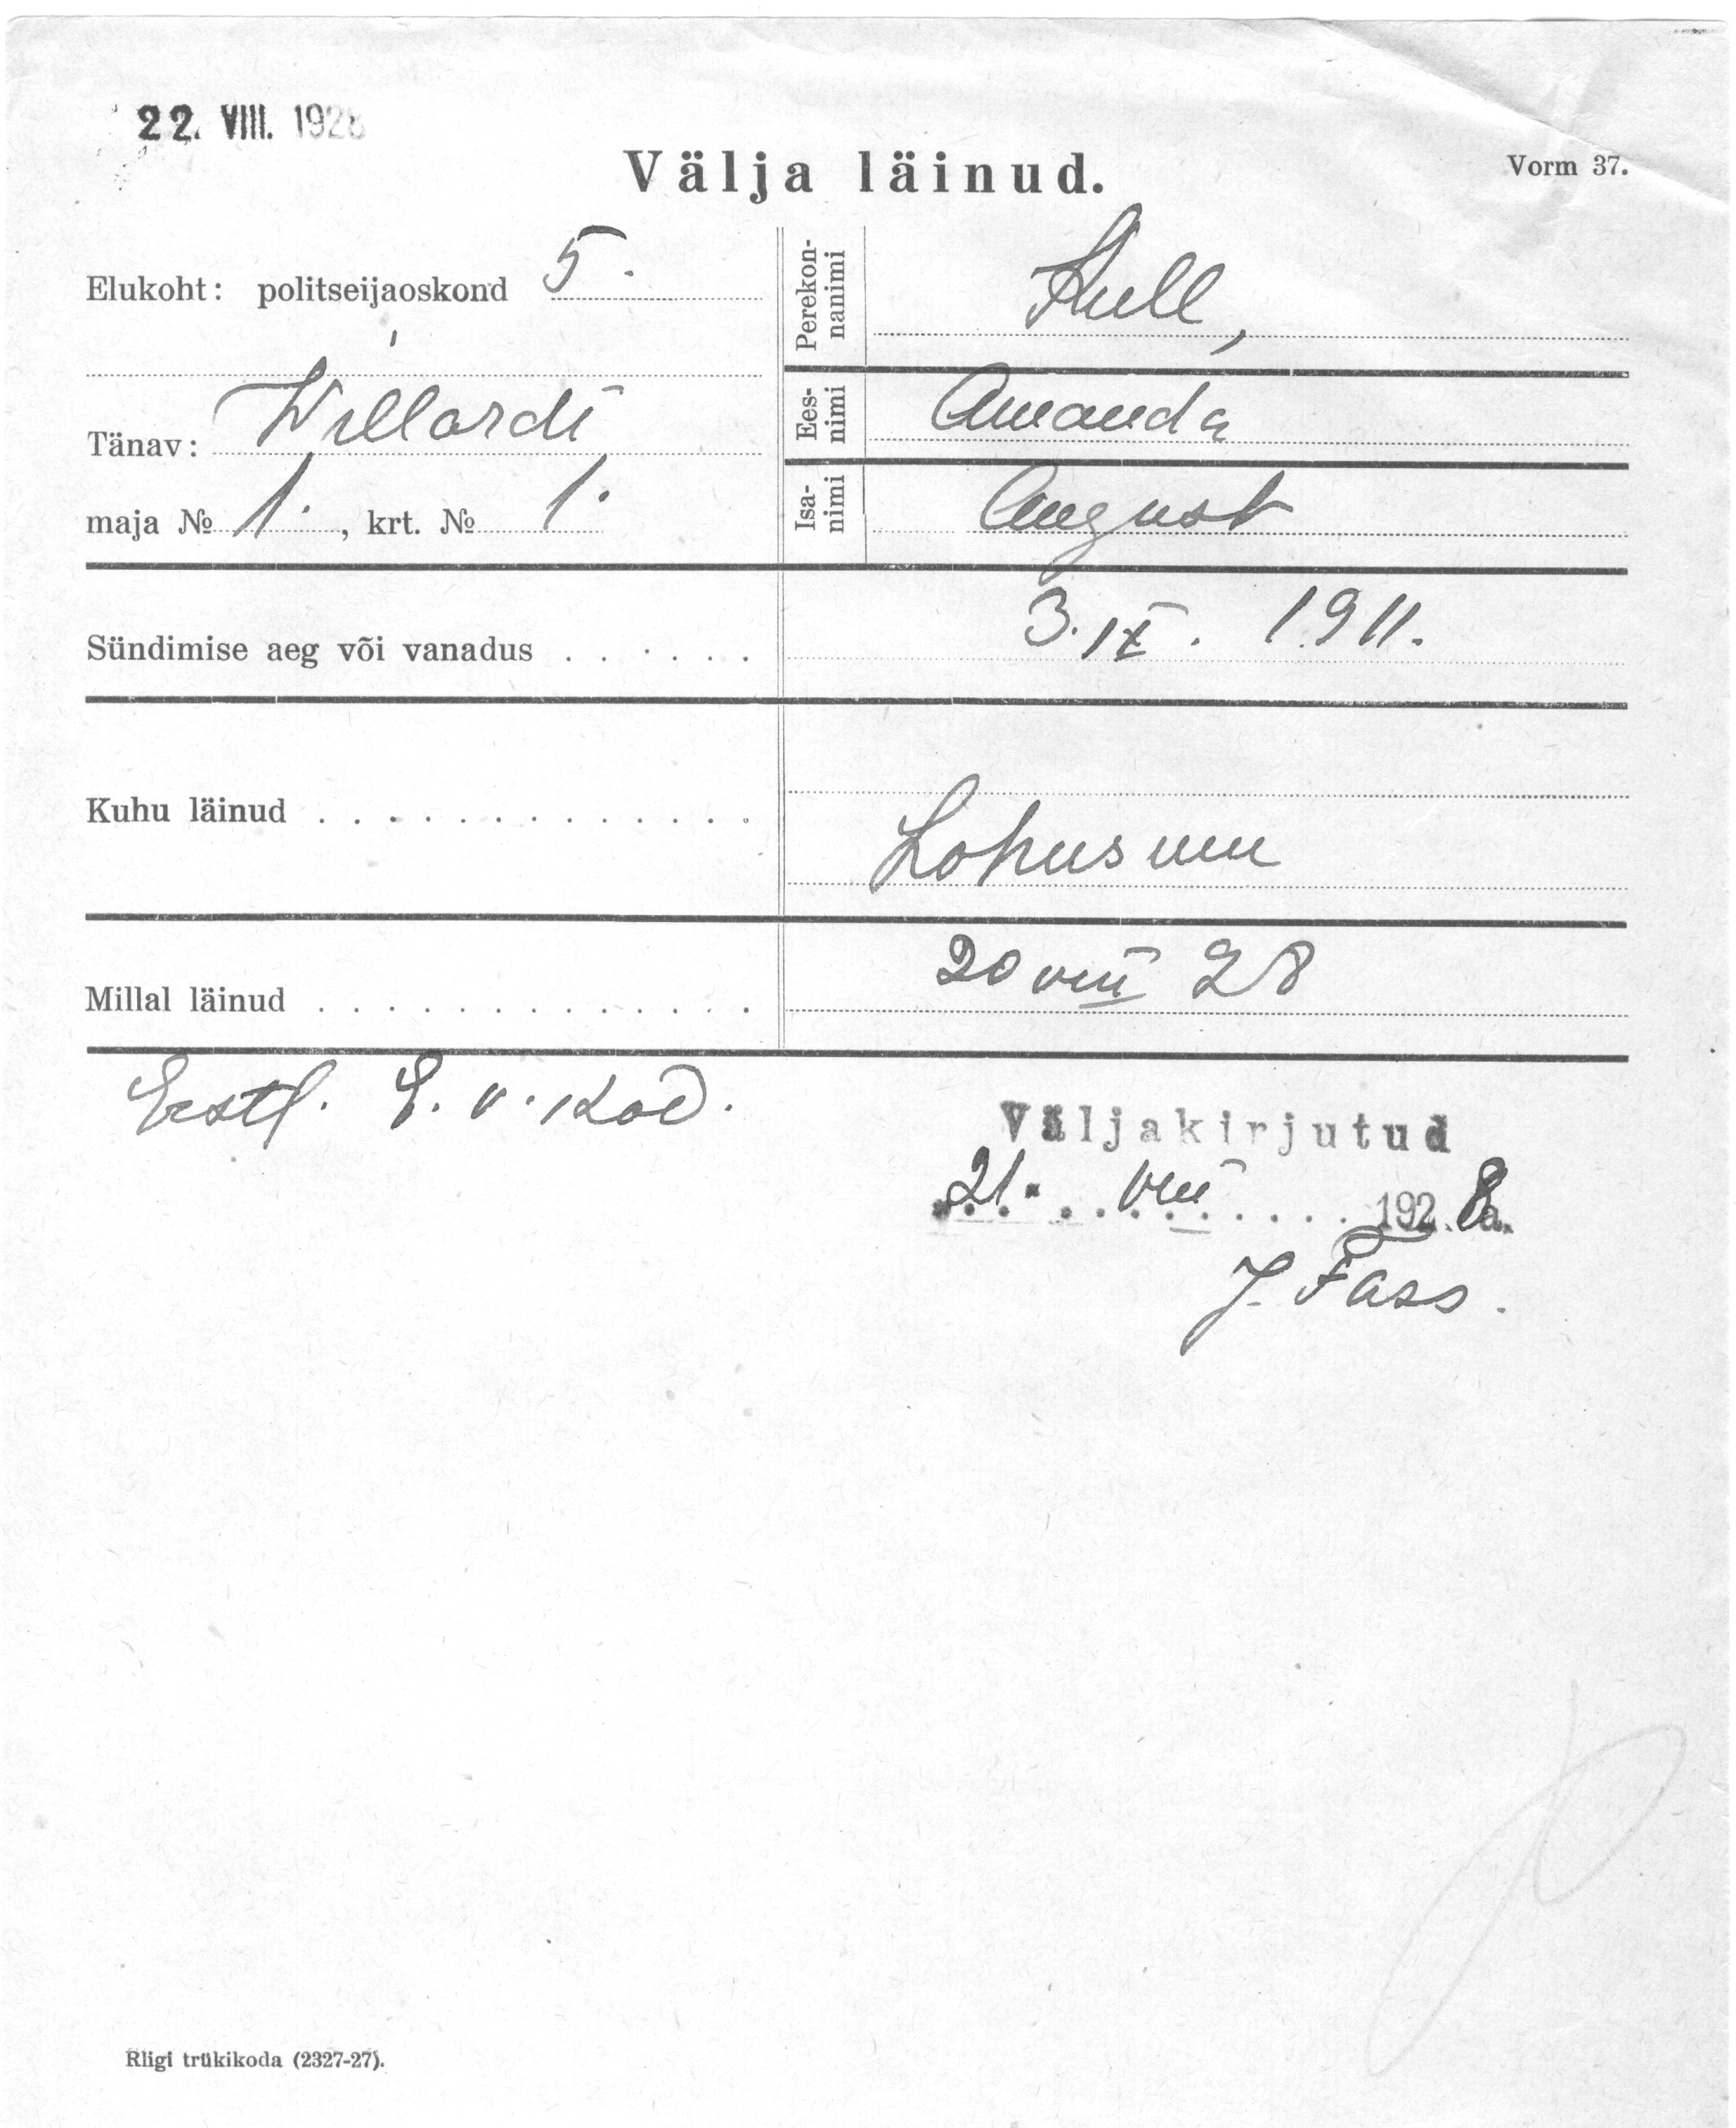 22. VIII. 1928
Välja läinud.
Vorm 37.
Elukoht: politseijaoskond 5.
Tänav: Willardi
maja № 1., krt. № 1.
Perekon-
nanimi
Kull,
Ees-
nimi
Amanda
Isa-
nimi
August
Sündimise aeg või vanadus . . . . . . 3. IX. 1911.
Kuhu läinud . . . . . . . . . . . . .
Lohusuu
Millal läinud . . . . . . . . . . . . . 20 VIII 28
Eestl. E. v. kod.
Väljakirjutud
21. VIII 1928 a.
J. Fass.
Riigi trükikoda (2327-27).